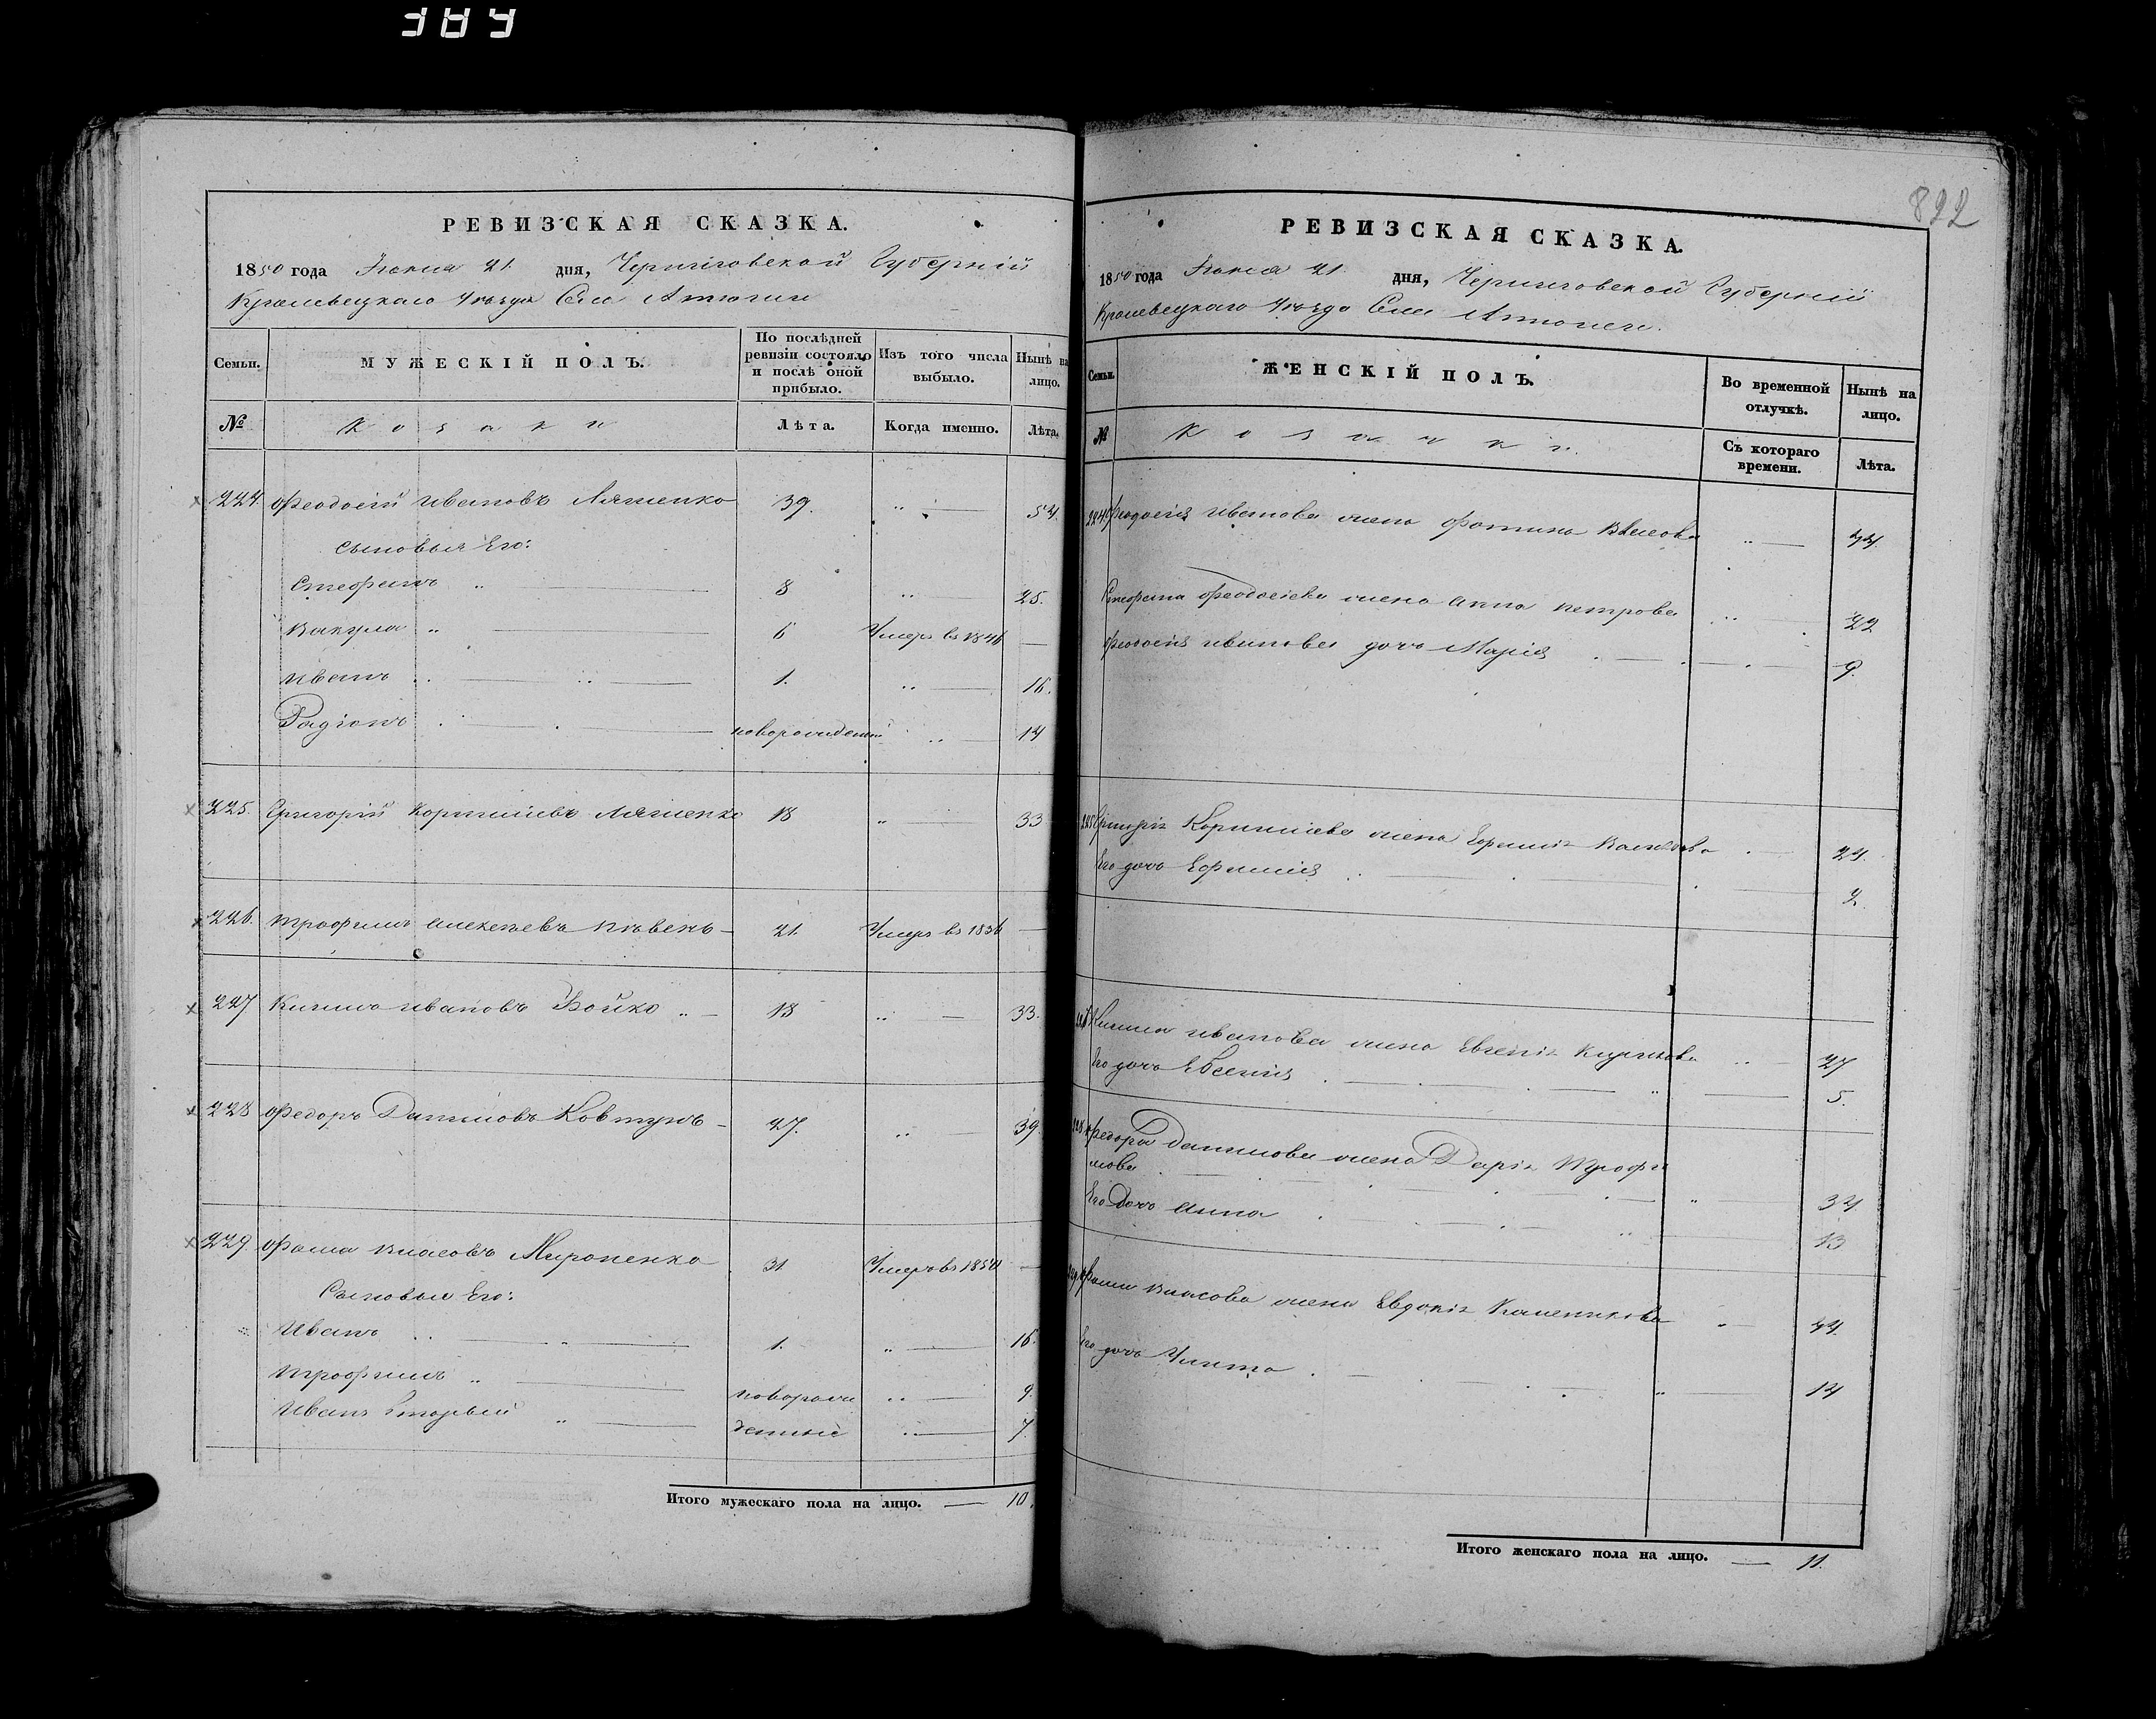 389
РЕВИЗСКАЯ СКАЗКА.
1850 года Іюня 21. дня, Черниговской Губерніи
Кролевецкаго Уѣзда Села
Семьи. МУЖЕСКІЙ ПОЛЪ. По послѣдней ревизіи состояло и послѣ оной прибыло. Изъ того числа выбыло. Нынѣ на лицо.
№ Козаки Лѣта. Когда именно. Лѣта.
224. Феодосій Ивановъ Ляшенко 39. 54.
Сыновья Его:
Стефанъ 8 25.
Вакула 6 Умеръ въ 1846
Иванъ 1. 16.
Радіонъ новорожденный 14
225. Григорій Корниліевъ Ляшенко 18 33
226. Трофимъ Алексѣевъ Пѣвень 21. Умеръ въ 1836
227 Ивановъ Бойко 18 33.
228 Федоръ Даниловъ Ковтунъ 27. 39.
229. Фома Власовъ Мироненко 31. Умеръ въ 1850
Сыновья Его:
Иванъ 1. 16.
Трофимъ новорож 9
Иванъ Вторый денные 7.
Итого мужескаго пола на лицо. 10.
822
РЕВИЗСКАЯ СКАЗКА.
1850 года Іюня 21. дня, Черниговской Губерніи
Кролевецкаго Уѣзда Села
Семьи. ЖЕНСКІЙ ПОЛЪ. Во временной отлучкѣ. Нынѣ на лицо.
№ Козачки. Съ котораго времени. Лѣта.
224 Феодосія Иванова жена Фотина Власова 44.
Стефана Феодосіева жена Анна Петрова 22
Феодосія Иванова дочь Марія 9.
225 Григорія Корниліева жена Евфимія 24.
Его дочь Евфимія 2.
227 Иванова жена Евгенія 27
Его дочь Евгенія 5.
228 Федора Данилова жена Дарія Трофи
мова 34
Его Дочь Анна 13
229 Фомы Власова жена Евдокія Каленикова 44.
Его дочь Улита 14
Итого женскаго пола на лицо. 11.